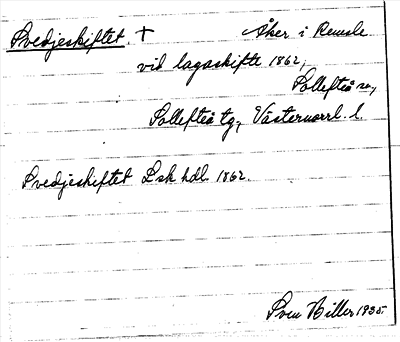 Svedjeskiftet. † Åker i Remsle
vid lagaskifte 1862,
Sollefteå sn,
Sollefteå tg, Västernorrl. l.
Svedjeskiftet Lsk hdl. 1862.
Sven Hiller 1935.